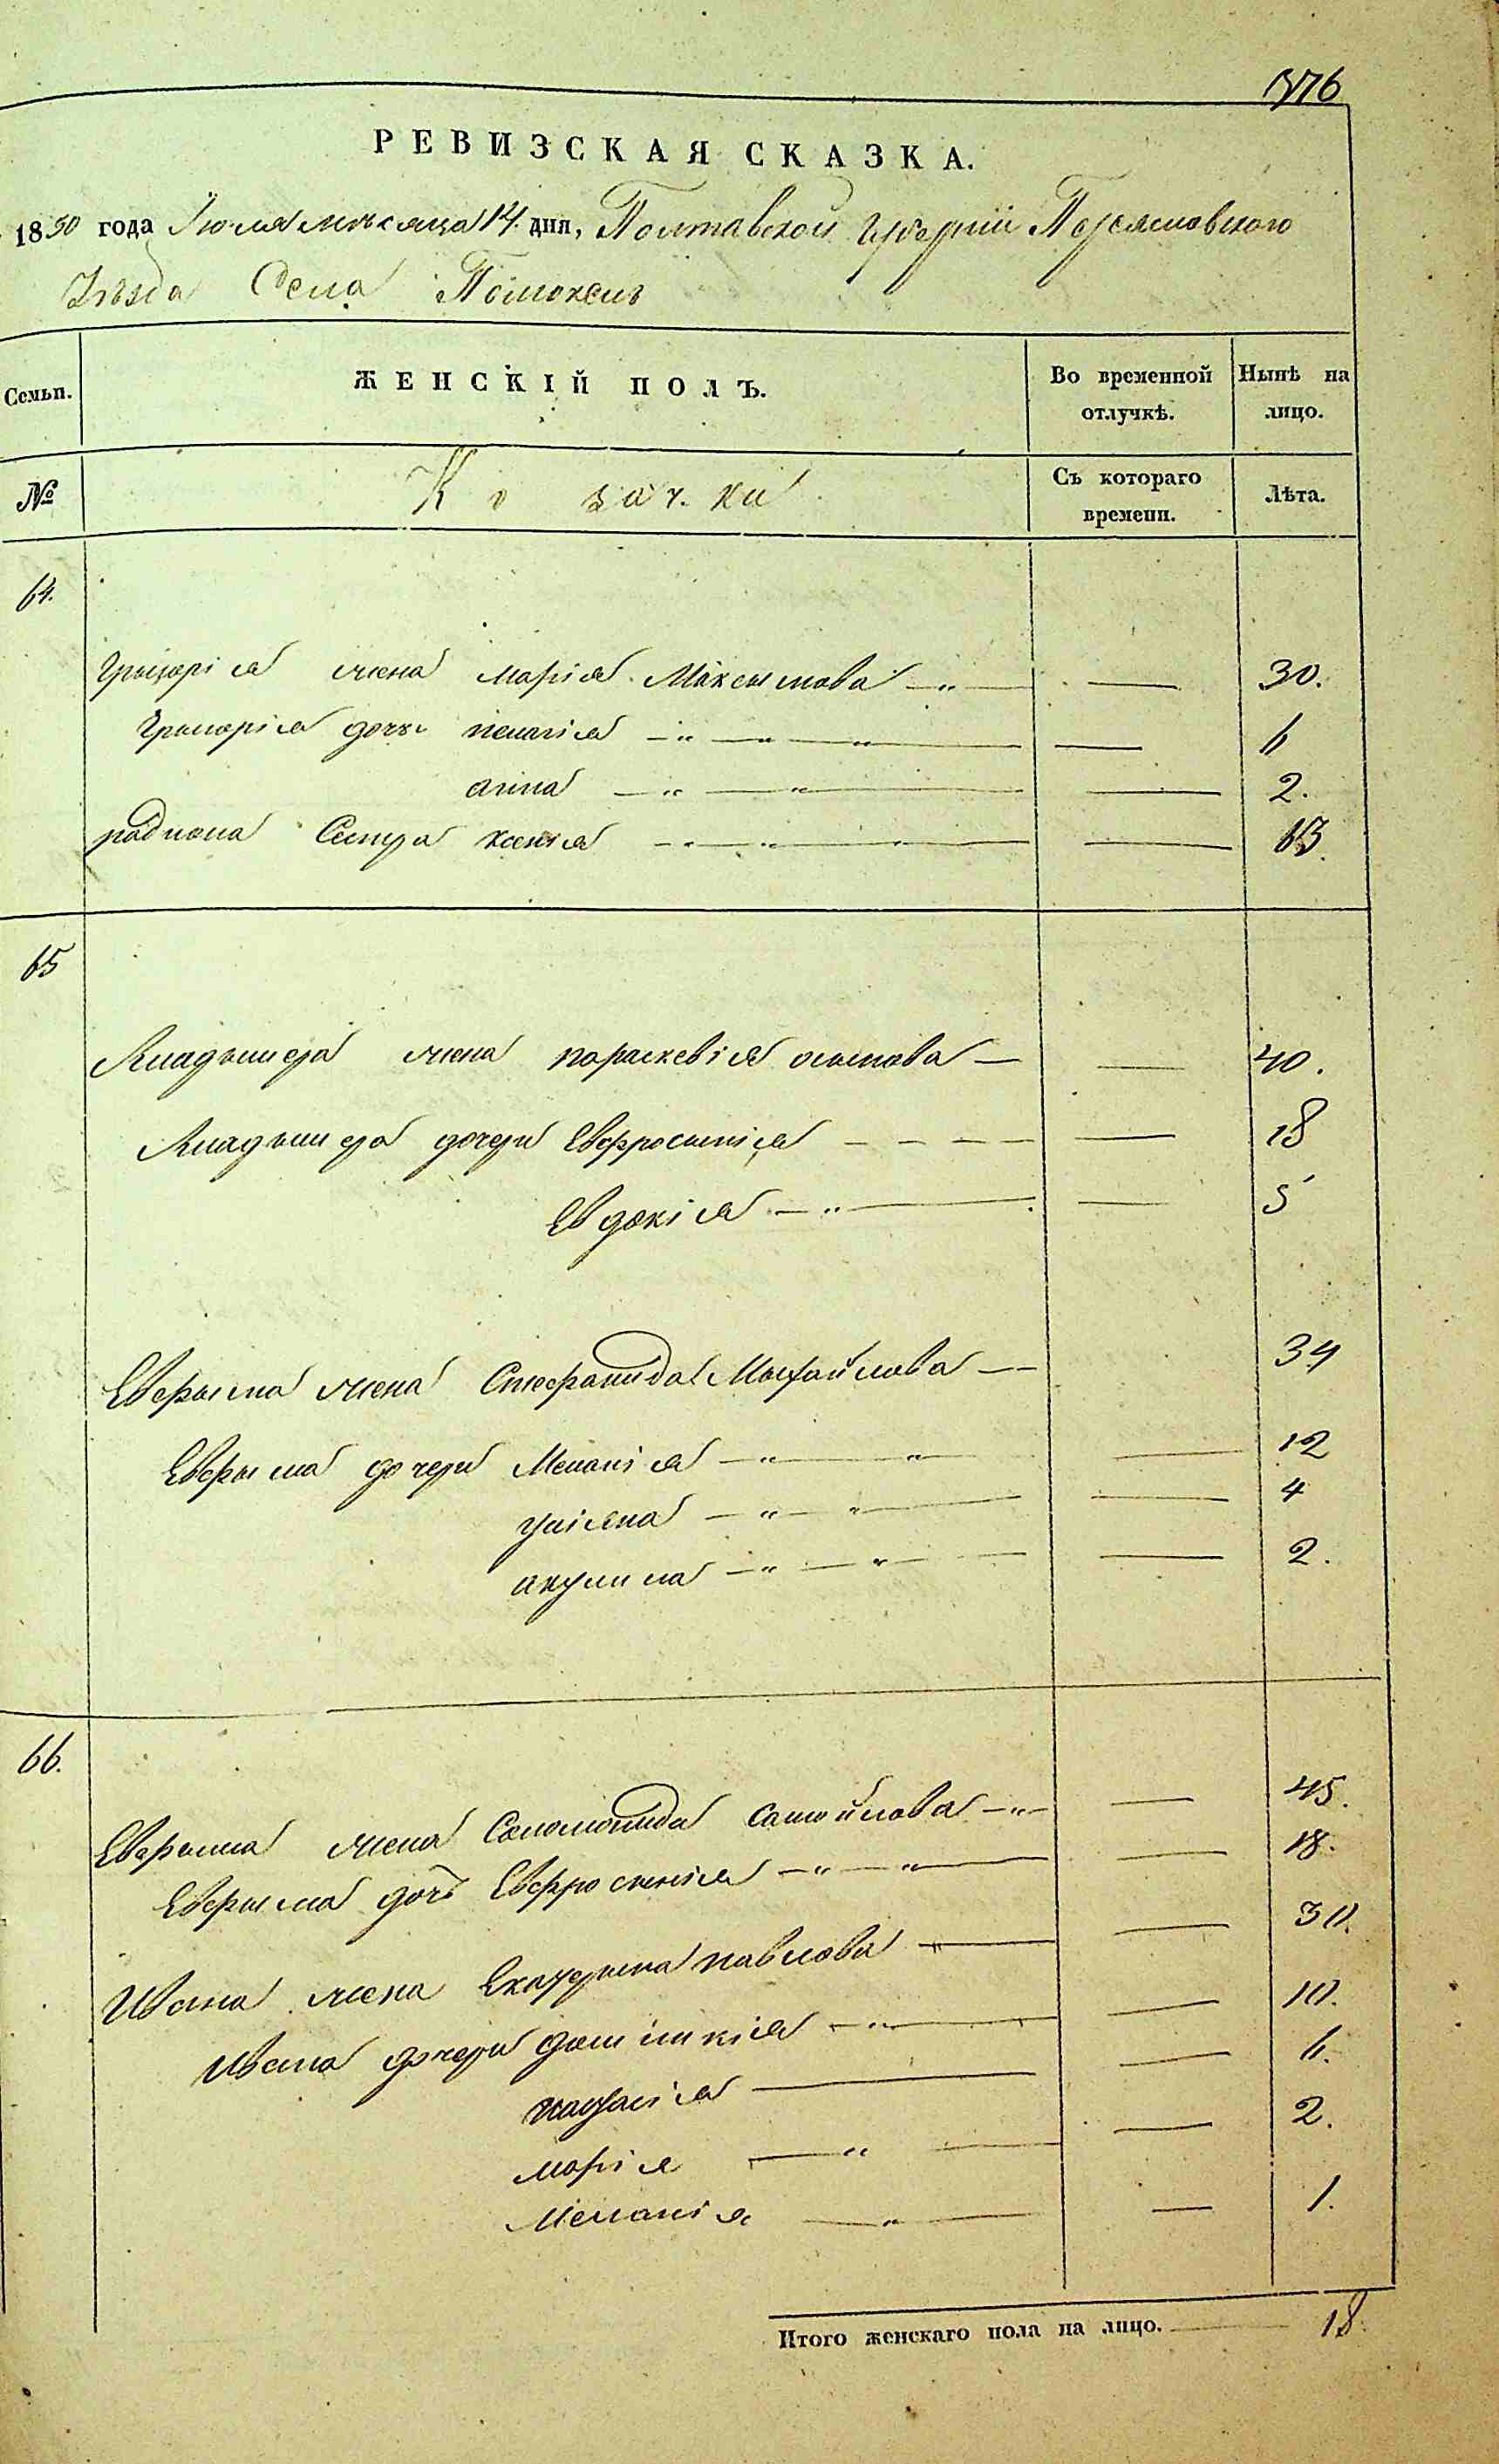 376
РЕВИЗСКАЯ СКАЗКА.
1850 года Іюля мѣсяца 14. дня, Полтавской Губерніи Переяславского
Уѣзда Села Помоклъ
Семьи. ЖЕНСКІЙ ПОЛЪ. Во временной отлучкѣ. Нынѣ на лицо.
№ Козачки Съ котораго времени. Лѣта.
64.
Григорія жена марія Максымова — 30.
Григорія дочь пелагія — 6
анна — 2.
радиона Сестра ксенія — 13.
65
Владымера жена параскевія осыпова — 40.
Владымера дочери Евфросынія — 18
Евдокія — 5
Евфыма жена Стефанида Мыхайлова — 34
Евфыма дочери Меланія — 12
уліяна — 4
акулина — 2.
66.
Евфыма жена Соломонида самойлова — 45.
Евфыма дочь Евфросынія — 18.
Ивана жена Екатерына павлова — 30.
Ивана дочери домникія — 10.
настасія — 6.
марія — 2.
Меланія — 1.
Итого женскаго пола на лицо. — 18.